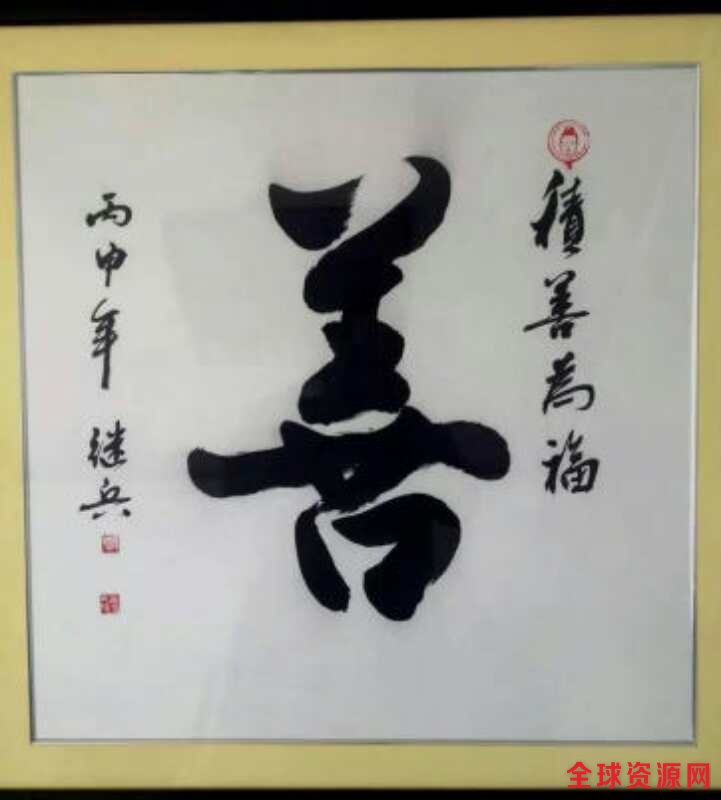 積善為福
善
丙申年 继兵
全球资源网